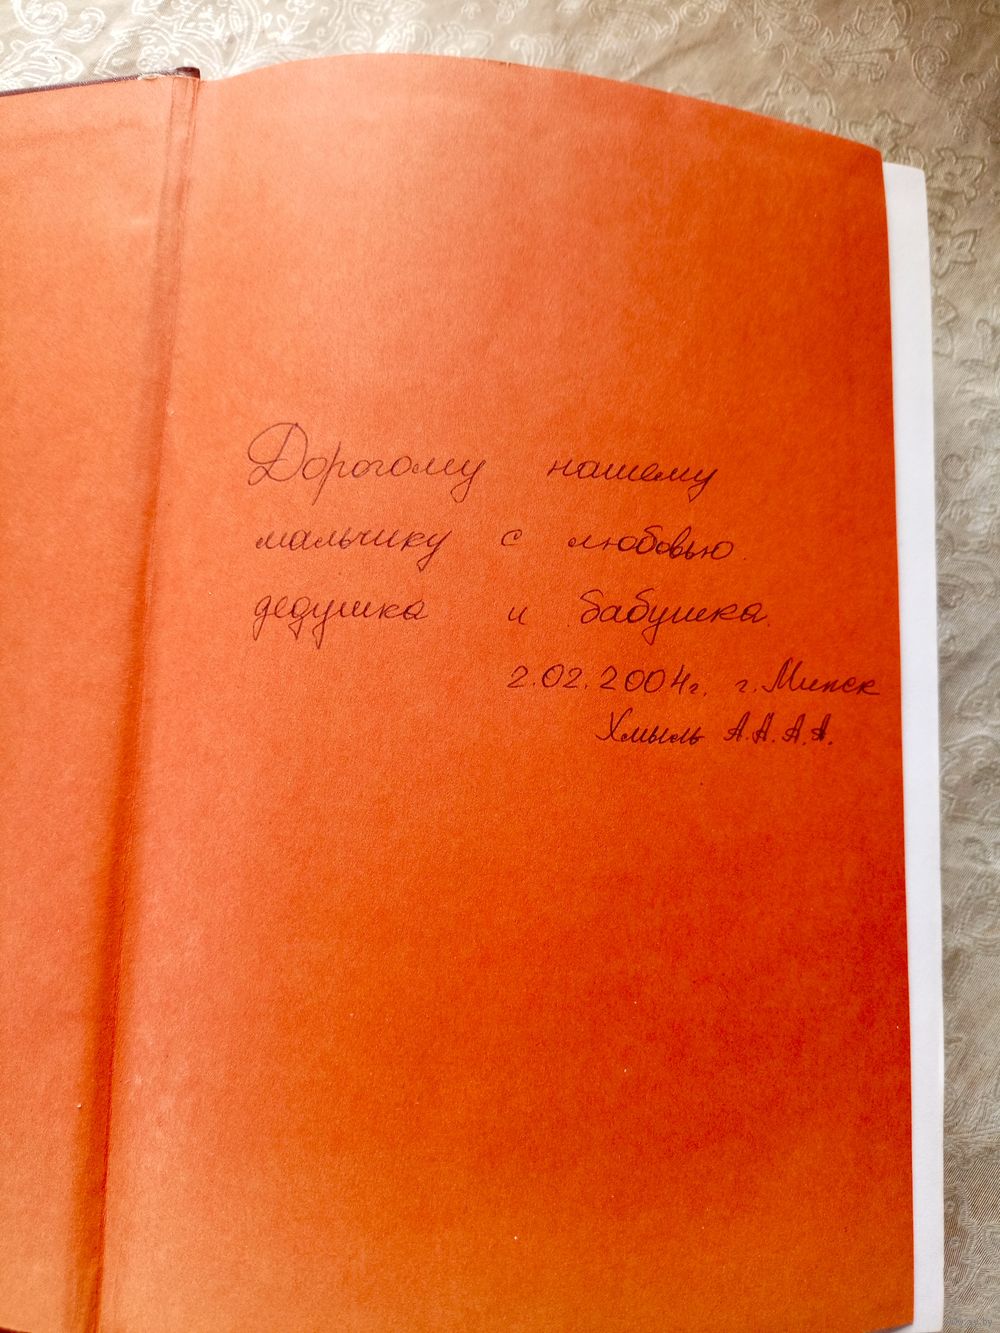 Дорогому нашему
мальчику с любовью
дедушка и бабушка.
2.02.2004г. г. Минск
Хмыль А.А. А.А.